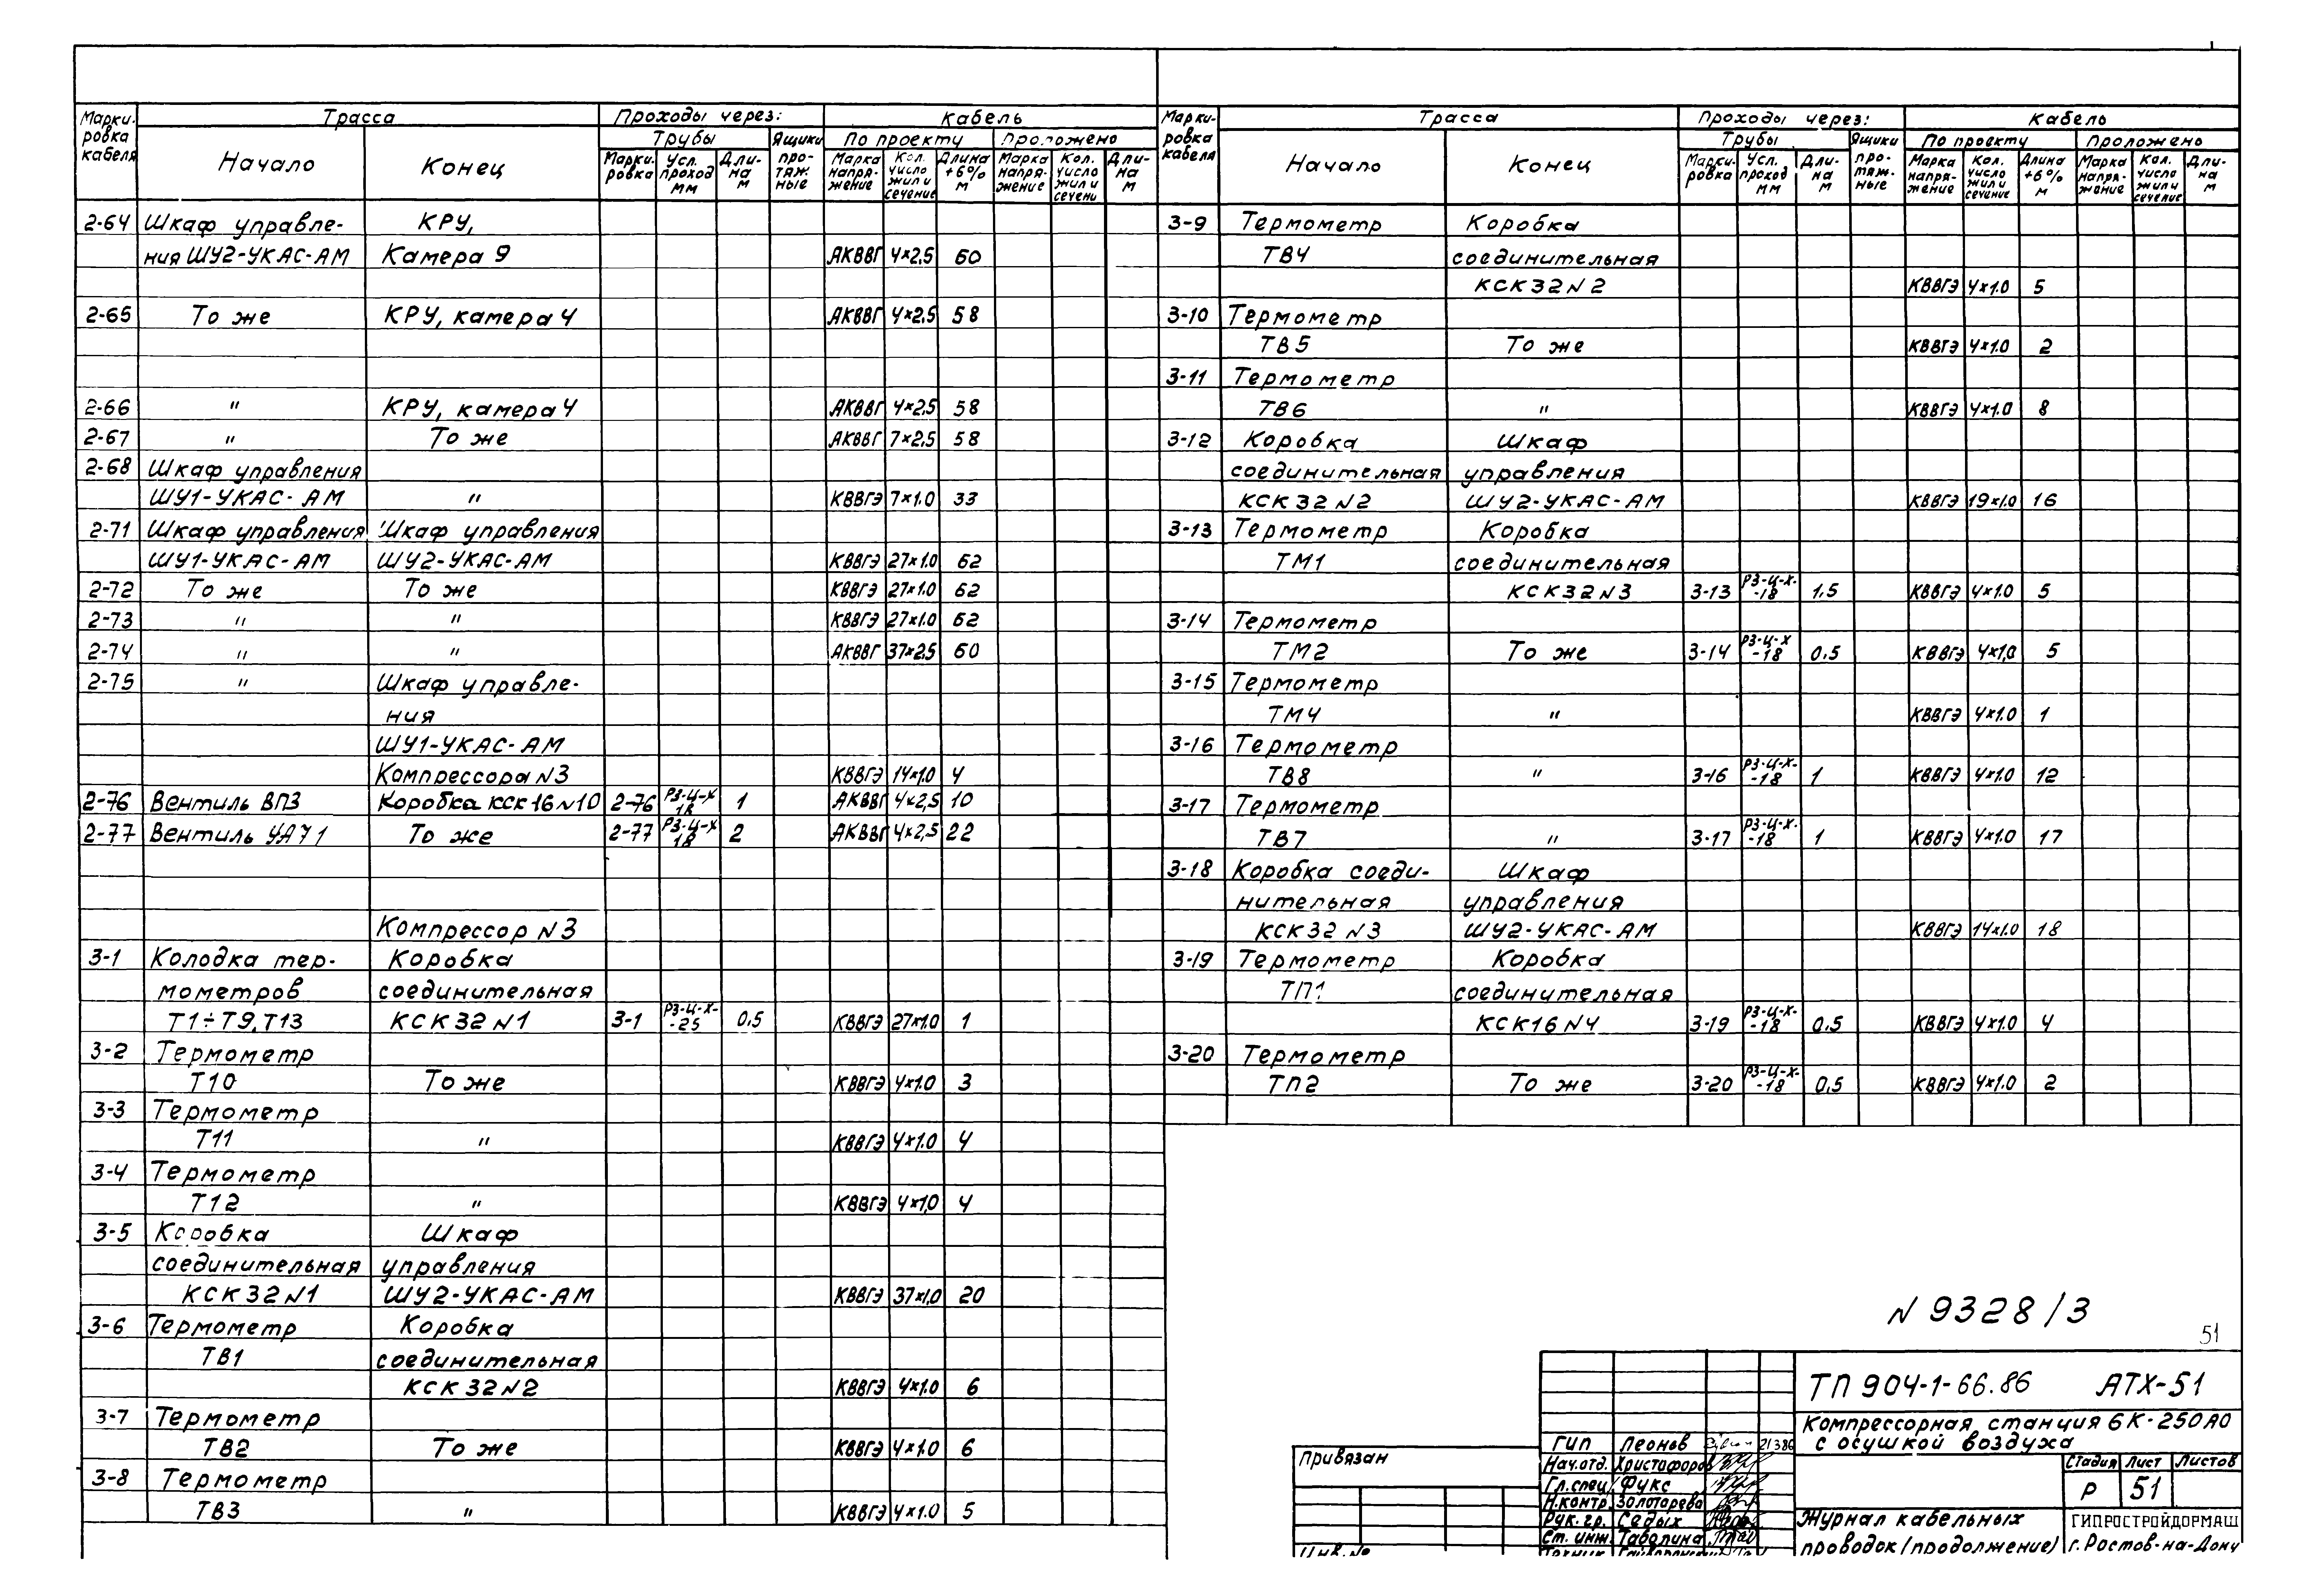 Марки-ровка кабеля | Трасса | Проходы через: | Кабель
Начало | Конец | Трубы | Ящики про-тяж.ные | По проекту | Проложено
Марки-ровка | Усл. проход мм | Дли-на м | Марка напря-жение | Кол. число жил и сечение | Длина +6% м | Марка напря-жение | Кол. число жил и сечени | Дли-на м
2-64 Шкаф управле- КРУ,
ния ШУ2-УКАС-АМ Камера 9 АКВВГ 4×2,5 60
2-65 То же КРУ, камера 4 АКВВГ 4×2,5 58
2-66 " КРУ, камера 4 АКВВГ 4×2,5 58
2-67 " То же АКВВГ 7×2,5 58
2-68 Шкаф управления
ШУ1-УКАС-АМ " КВВГЭ 7×1.0 33
2-71 Шкаф управления Шкаф управления
ШУ1-УКАС-АМ ШУ2-УКАС-АМ КВВГЭ 27×1.0 62
2-72 То же То же КВВГЭ 27×1.0 62
2-73 " " КВВГЭ 27×1.0 62
2-74 " " АКВВГ 37×2,5 60
2-75 " Шкаф управле-
ния
ШУ1-УКАС-АМ
Компрессора N3 КВВГЭ 14×1.0 4
2-76 Вентиль ВПЗ Коробка КСК16 N10 2-76 РЗ-Ц-Х 18 1 АКВВГ 4×2,5 10
2-77 Вентиль УА71 То же 2-77 РЗ-Ц-Х 18 2 АКВВГ 4×2,5 22
Компрессор N3
3-1 Колодка тер- Коробка
мометров соединительная
Т1÷Т9,Т13 КСК32 N1 3-1 РЗ-Ц-Х--25 0,5 КВВГЭ 27×1.0 1
3-2 Термометр
Т10 То же КВВГЭ 4×1.0 3
3-3 Термометр
Т11 " КВВГЭ 4×1.0 4
3-4 Термометр
Т12 " КВВГЭ 4×1,0 4
3-5 Коробка Шкаф
соединительная управления
КСК32 N1 ШУ2-УКАС-АМ КВВГЭ 37×1,0 20
3-6 Термометр Коробка
ТВ1 соединительная
КСК32 N2 КВВГЭ 4×1.0 6
3-7 Термометр
ТВ2 То же КВВГЭ 4×1.0 6
3-8 Термометр
ТВ3 " КВВГЭ 4×1.0 5
Марки-ровка кабеля | Трасса | Проходы через: | Кабель
Начало | Конец | Трубы | Ящики про-тяж.-ные | По проекту | Проложено
Марки-ровка | Усл. проход мм | Дли-на м | Марка напря-жение | Кол. число жил и сечение | Длина +6% м | Марка напря-жение | Кол. число жил и сечение | Дли-на м
3-9 Термометр Коробка
ТВ4 соединительная
КСК32 N2 КВВГЭ 4×1.0 5
3-10 Термометр
ТВ5 То же КВВГЭ 4×1.0 2
3-11 Термометр
ТВ6 " КВВГЭ 4×1.0 8
3-12 Коробка Шкаф
соединительная управления
КСК32 N2 ШУ2-УКАС-АМ КВВГЭ 19×1.0 16
3-13 Термометр Коробка
ТМ1 соединительная
КСК32 N3 3-13 РЗ-Ц-Х--18 1,5 КВВГЭ 4×1.0 5
3-14 Термометр
ТМ2 То же 3-14 РЗ-Ц-Х-18 0,5 КВВГЭ 4×1,0 5
3-15 Термометр
ТМ4 " КВВГЭ 4×1.0 1
3-16 Термометр
ТВ8 " 3-16 РЗ-Ц-Х--18 1 КВВГЭ 4×1.0 12
3-17 Термометр
ТВ7 " 3-17 РЗ-Ц-Х--18 1 КВВГЭ 4×1.0 17
3-18 Коробка соеди- Шкаф
нительная управления
КСК32 N3 ШУ2-УКАС-АМ КВВГЭ 14×1.0 18
3-19 Термометр Коробка
ТП1 соединительная
КСК16 N4 3-19 РЗ-Ц-Х--18 0,5 КВВГЭ 4×1.0 4
3-20 Термометр
ТП2 То же 3-20 РЗ-Ц-Х--18 0,5 КВВГЭ 4×1.0 2
N 9328/3
51
ТП 904-1-66.86 АТХ-51
Компрессорная станция 6К-250АО
с осушкой воздуха
Привязан
Инв.№
ГИП Леонов 21386
Нач.отд. Христофоров
Гл.спец. Фукс
Н.контр. Золотарева
Рук.гр. Седых
Ст. инж. Таболина
Стадия Лист Листов
Р 51
Журнал кабельных
проводок (продолжение)
ГИПРОСТРОЙДОРМАШ
г. Ростов-на-Дону